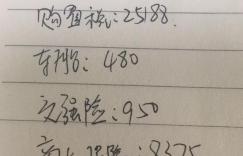 购置税:25188.
车船:480
交强险:950
商业保险:8375